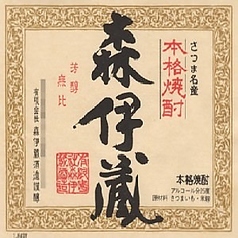 さつま名産
本格焼酎
森伊蔵
芳醇
無比
有限会社 森伊蔵酒造謹醸
本格焼酎
アルコール分25度
原材料 さつまいも・米麹